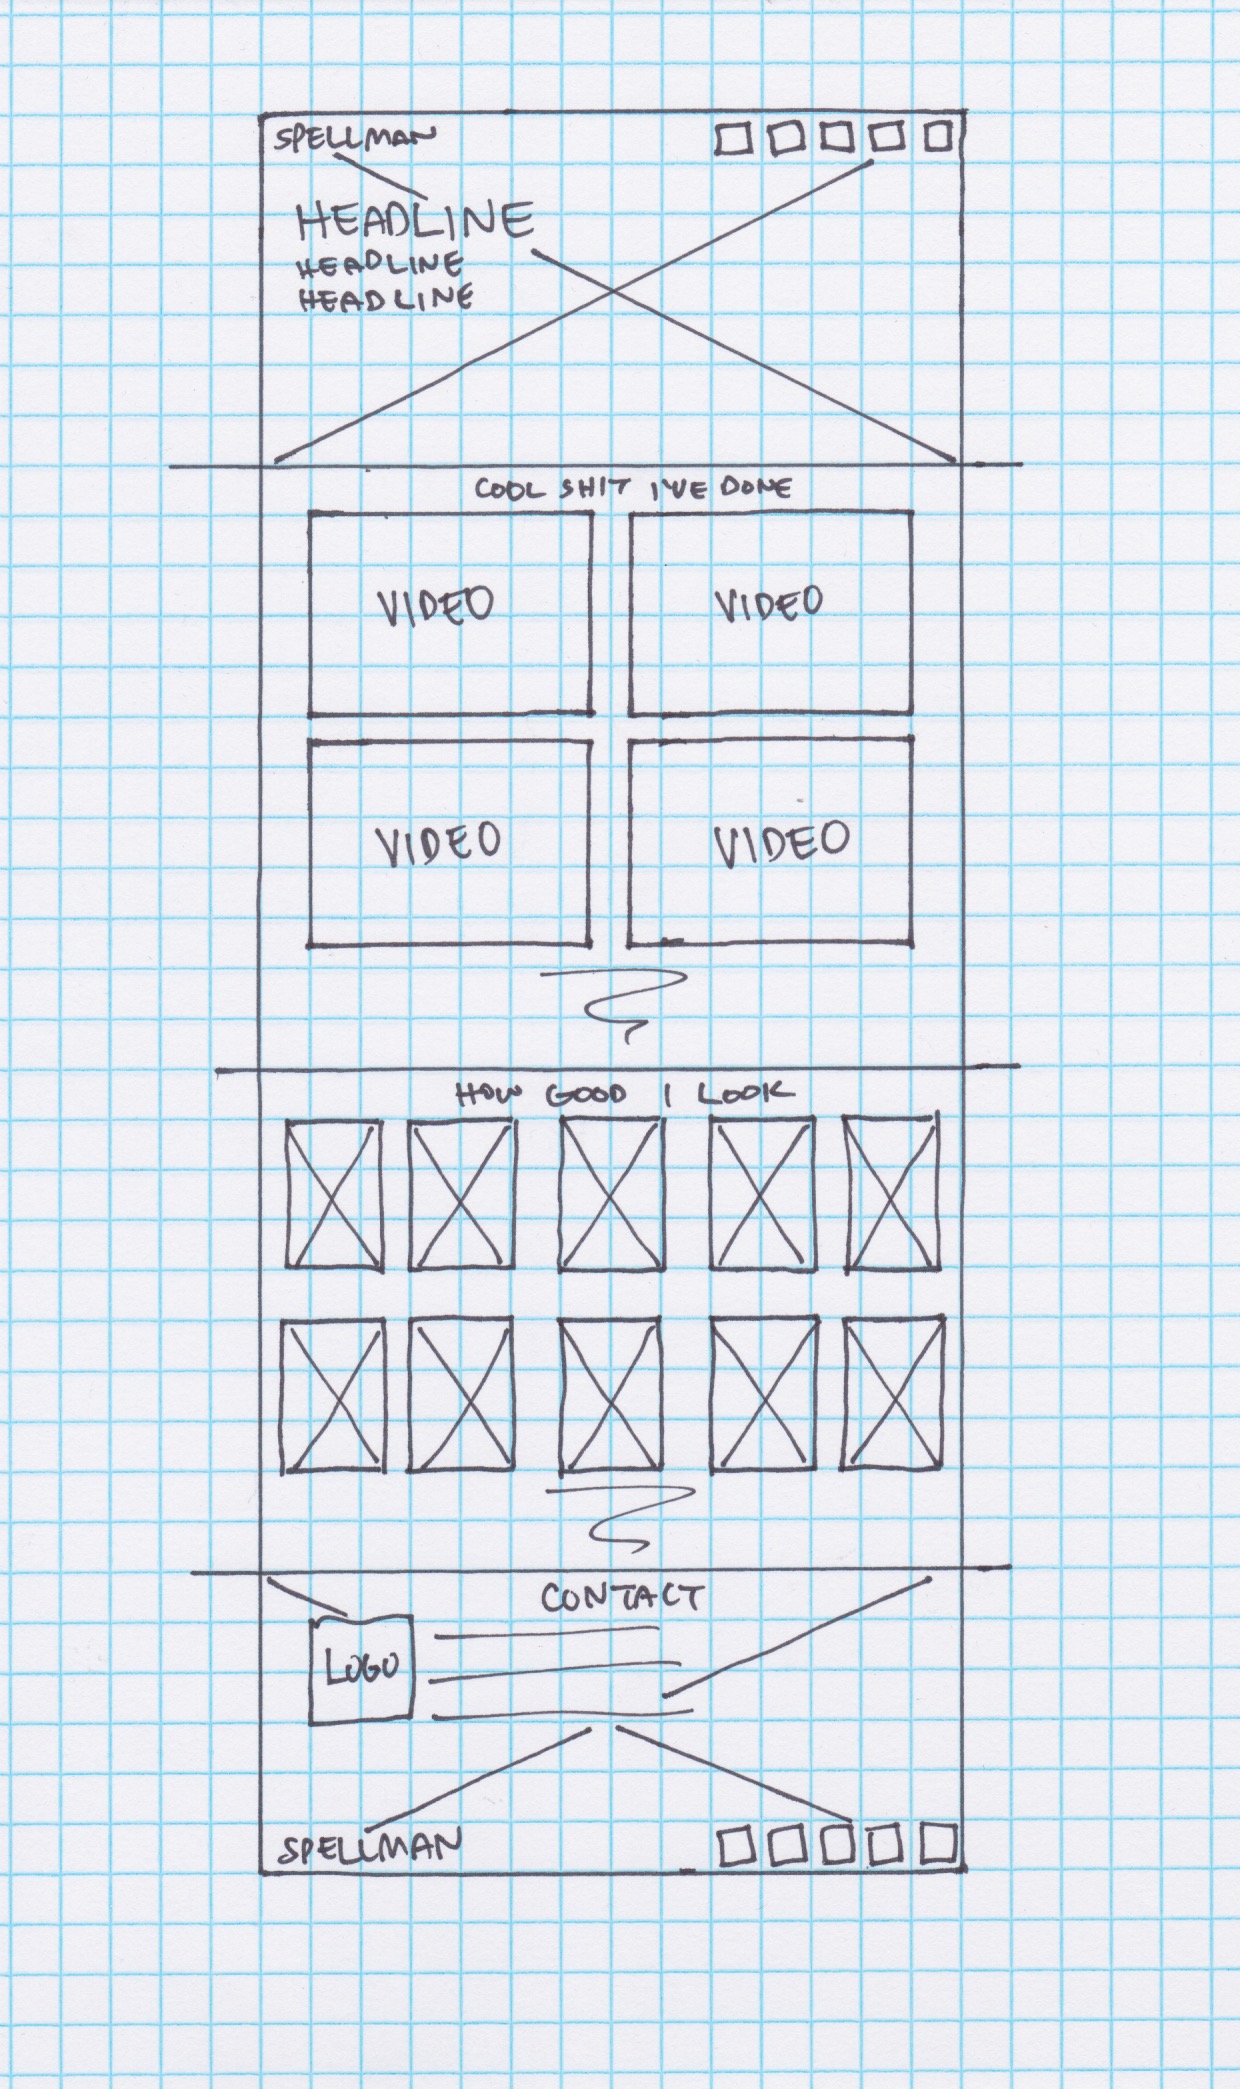 SPELLMAN
HEADLINE
HEADLINE
HEADLINE
COOL SHIT I'VE DONE
VIDEO VIDEO
VIDEO VIDEO
HOW GOOD I LOOK
CONTACT
LOGO
SPELLMAN